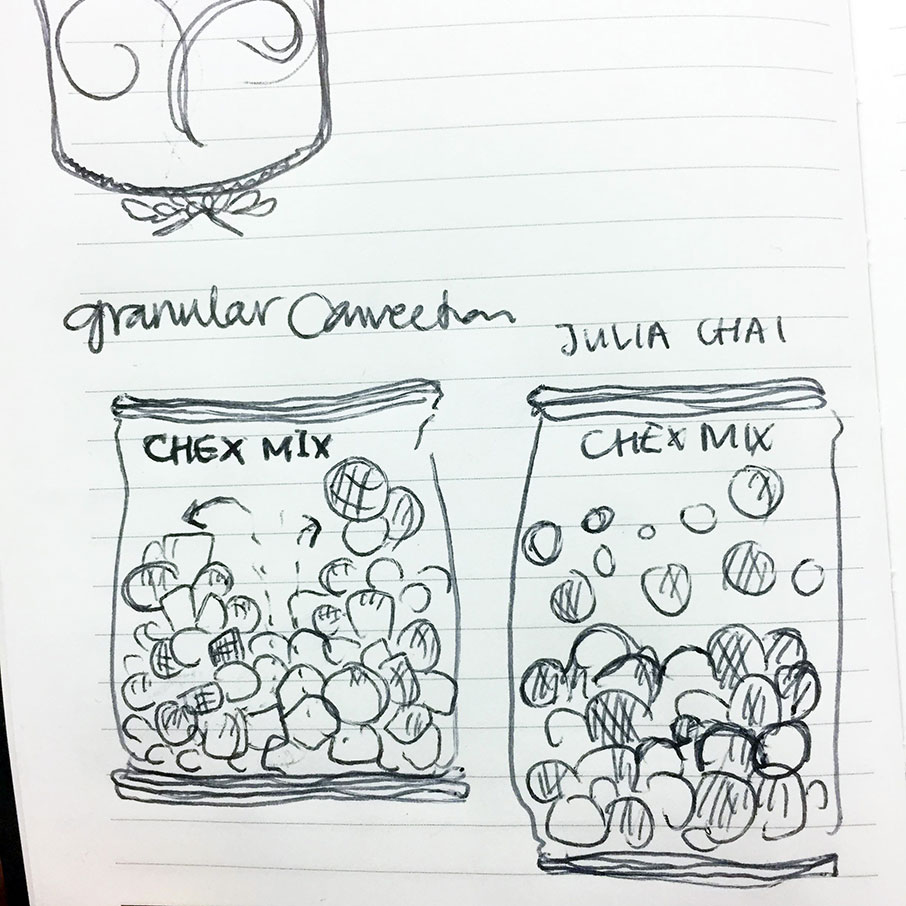 granular Convection
JULIA CHAI
CHEX MIX
CHEX MIX